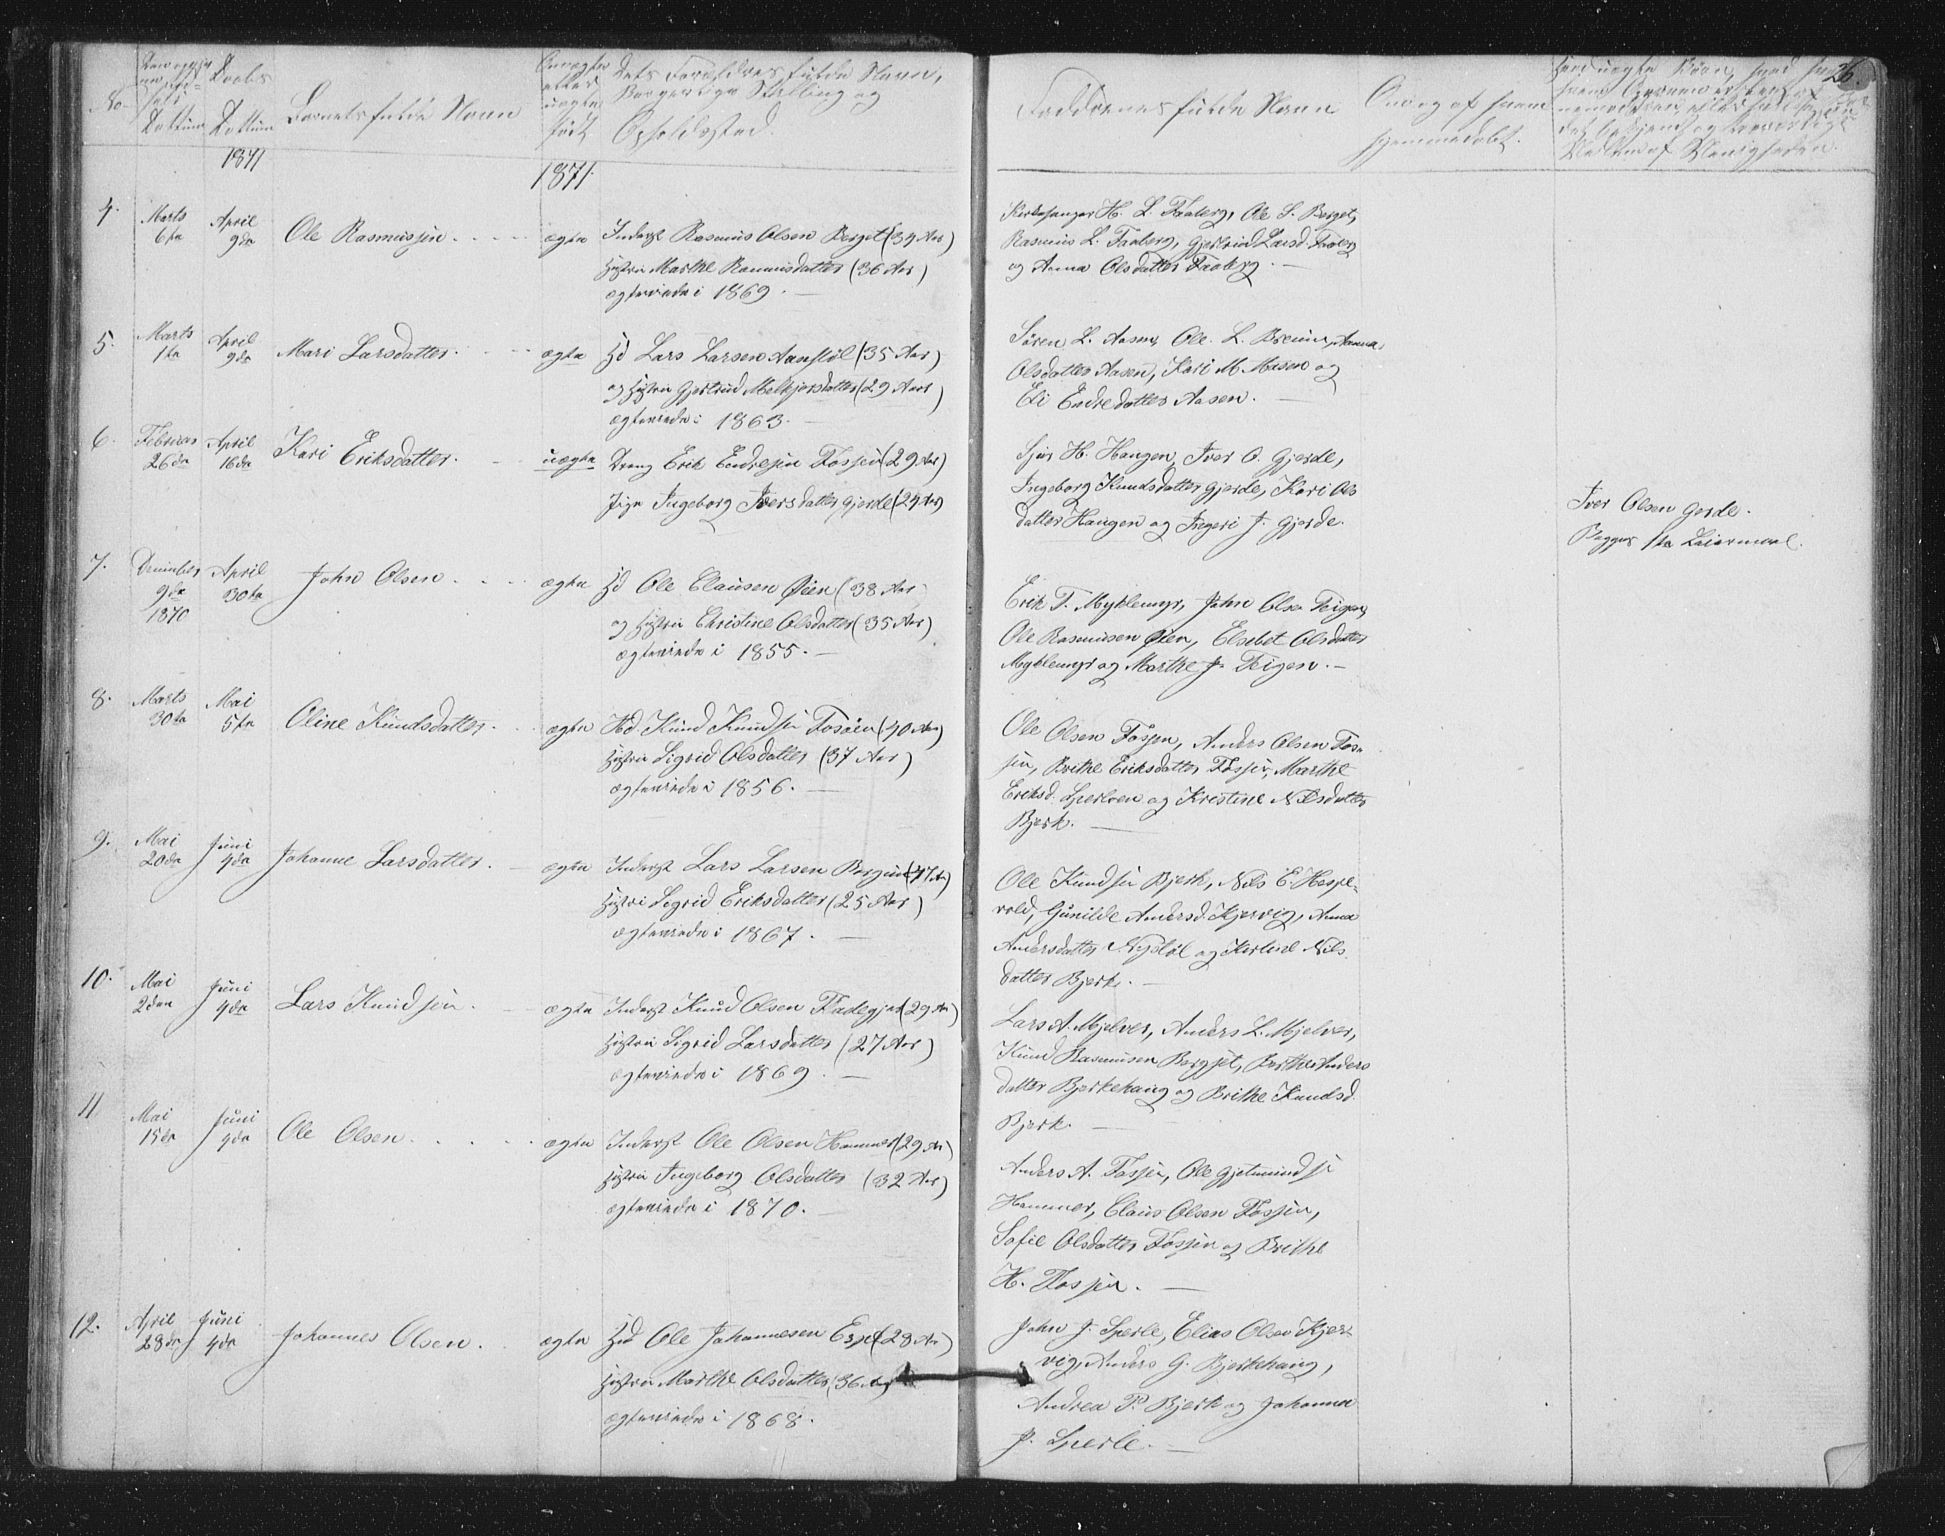 No
Daabs
Dattum
Dattum
Barnets fulde Navn
uægte
født
Dets Forældres fulde Navn,
Borgerlige Stilling og
Opholdssted.
Faddernes fulde Navn
Om og af hvem
hjemmedøbt.
26.
1871
1871
4. Marts 6te April 9de Ole Rasmussen ægte Inderst Rasmus Olsen Berget (34 Aar)
Hustru Marthe Rasmusdatter (36 Aar)
ægteviede i 1869.
Kirkesanger H. L. Faaberg, Ole S. Berget,
Rasmus L. Faaberg, Gjertrud Larsd. Faaberg
og Anna Olsdatter Faaberg.
5. Marts 1te April 9de Mari Larsdatter. ægte Hd Lars Larsen Aanstøl (35 Aar)
og Hustru Gjertrud Melkjorsdatter (29 Aar)
ægteviede i 1863.
Søren L. Aasen, Ole L. Bremer, Anna
Olsdatter Aasen, Kari M. Aasen og
Eli Endredatter Aasen.
6. Februar 26de April 16de Kari Eriksdatter. uægte Dreng Erik Endresen Fossen (29 Aar)
Pige Ingeborg Iversdatter Gjerde (24 Aar)
H. Haugen, Iver O. Gjerde,
Ingeborg Knudsdatter Gjerde, Kari Ols
datter Haugen og Ingeri J. Gjerde.
Iver Olsen Gerde.
Begges 1te Leiermaal.
7. December 9de 1870 April 30te John Olsen ægte Hd Ole Clausen Øien (38 Aar)
og Hustru Christine Olsdatter (35 Aar)
ægteviede i 1855.
Erik T. Myklemyr, John Olsen Teigen,
Ole Rasmussen Øien, Elsebet Olsdatter
Myklemyr og Marthe J. Teigen.
8. Marts 30te Mai 5te Oline Knudsdatter. ægte Hd. Knud Knudsen Fosøen (40 Aar)
Hustru Sigrid Olsdatter (37 Aar)
ægteviede i 1856.
Ole Olsen Fossen, Anders Olsen Fos-
sen, Brithe Eriksdatter Fossen, Marthe
Eriksd. Sperleen og Kristine Nilsdatter
Bjerk.
9. Mai 20de Juni 4de Johanne Larsdatter. ægte Inderst Lars Larsen
Hustru Sigrid Eriksdatter (25 Aar)
ægteviede i 1867.
Ole Knudsen Bjerk, Nils E. Hespe-
vold, Gunilde Andersd. Kjervig, Anna
Andersdatter Nystøl og Nils
datter Bjerk.
10. Mai 2den Juni 4de Lars Knudsen. ægte Inderst Knud Olsen (29 Aar)
Hustru Sigrid Larsdatter (27 Aar)
ægteviede i 1869.
Lars A. Mjelver, Anders L. Mjelver,
Knud Rasmussen Bergset, Brithe Anders
datter Bjerkehaug og Brithe Knudsd.
Bjerk.
11 Mai 15de Juni 4de Ole Olsen ægte Inderst Ole Olsen Hammer (29 Aar)
Hustru Ingeborg Olsdatter (32 Aar)
ægteviede i 1870.
Anders A. Fossen, Ole Gjetmundsen
Hammer, Claus Olsen Fossen,
Sofie Olsdatter Fossen og Brithe
H. Fossen.
12. April 28de Juni 4de Johannes Olsen. ægte Hd Ole Johannesen Espe (28 Aar)
Hustru Marthe Olsdatter (36 Aar)
ægteviede i 1868.
John J. Sperle, Elias Olsen Kjer-
vig, Anders G. Bjerkehaug,
Andrea P. Bjerk og Johanna
J. Sperle.